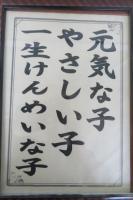 元気な子
やさしい子
一生けんめいな子